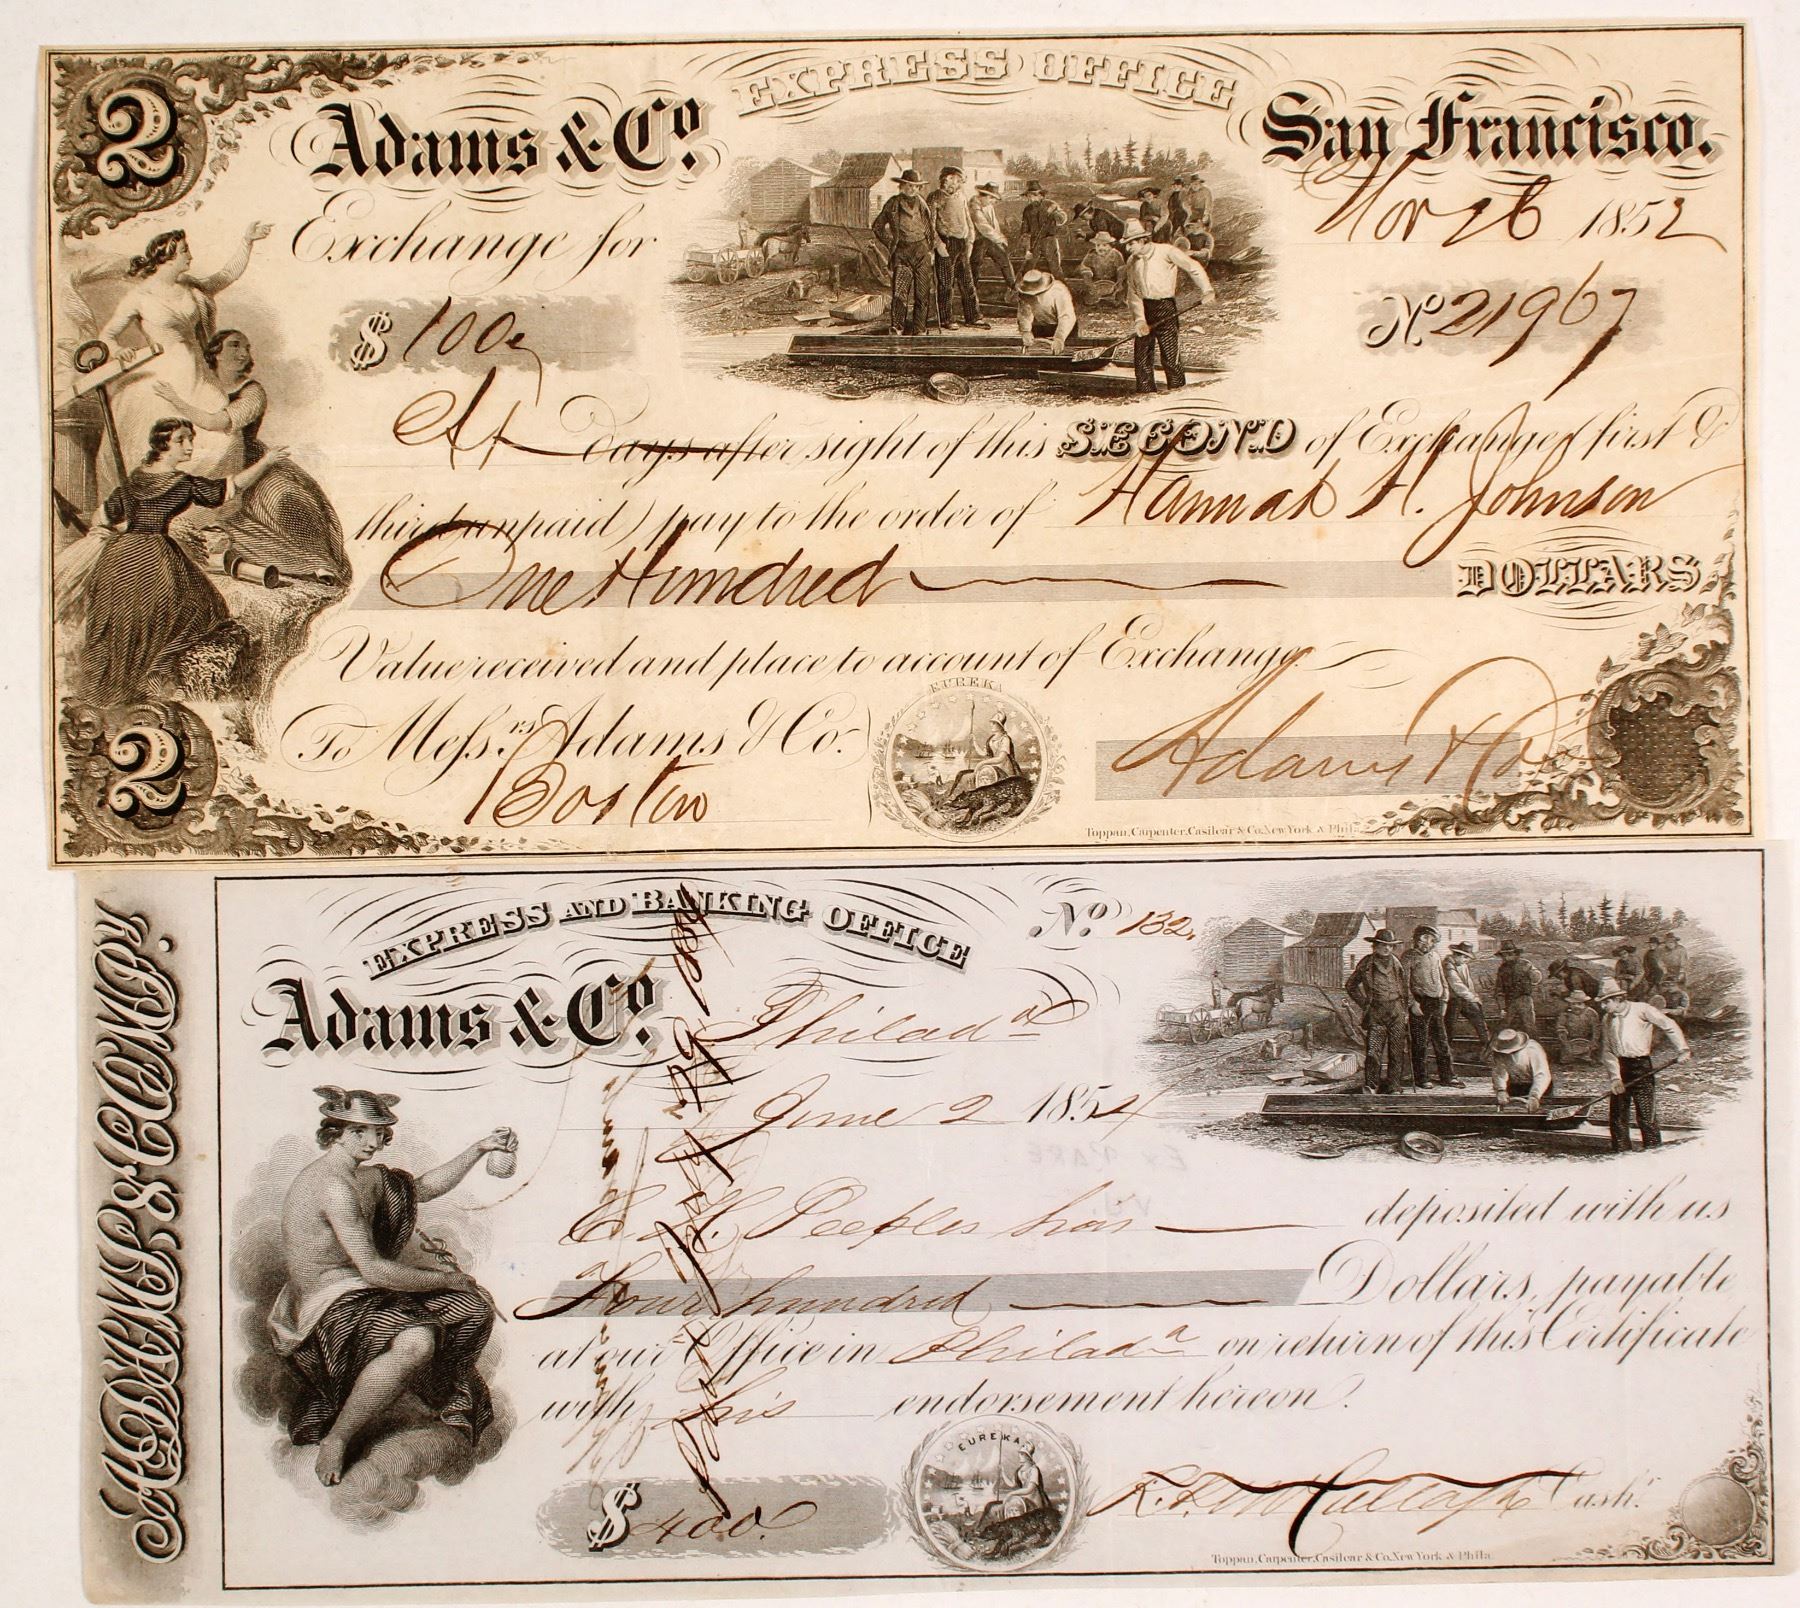 2
Adams & Co.
EXPRESS OFFICE
San Francisco.
Nov 26 1852
Exchange for
$ 100
No. 21967
At days after sight of this SECOND of Exchange (first &
third unpaid) pay to the order of Hannah H. Johnson
One Hundred DOLLARS
Value received and place to account of Exchange
To Messrs. Adams & Co.
Boston
EUREKA
Adams & Co
2
Toppan, Carpenter, Casilear & Co. New York & Phila.
ADAMS & COMPY.
EXPRESS AND BANKING OFFICE
No. 132.
Adams & Co.
Philada
June 2 1854
Peeples has deposited with us
Four hundred Dollars, payable
at our Office in Philada on return of this Certificate
with his endorsement hereon.
$ 400.
EUREKA
Cashr.
Toppan, Carpenter, Casilear & Co. New York & Phila.